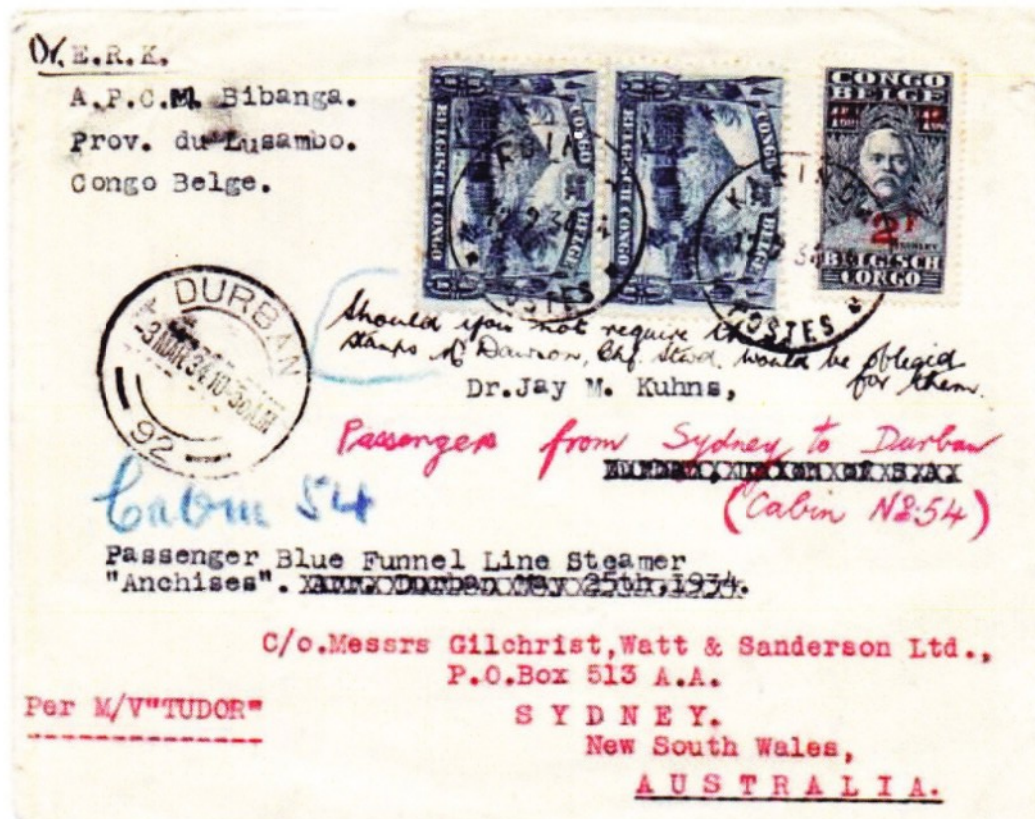 Dr. E.R.K.
A.P.C.M. Bibanga.
Prov. du Lusambo.
Congo Belge.
CONGO BELGE
BELGISCH CONGO
CONGO BELGE
BELGISCH CONGO
CONGO
BELGE
2F
STANLEY
BELGISCH
CONGO
POSTES
POSTES
DURBAN
-3MAR34 10-30AM
92
Should you not require the
stamps H Dawson, Chf. Stwd. would be obliged
for them.
Dr.Jay M. Kuhns,
Passenger from Sydney to Durban
(Cabin No:54)
Cabin 54
Passenger Blue Funnel Line Steamer
"Anchises". Arr. Durban May 25th,1934.
C/o.Messrs Gilchrist,Watt & Sanderson Ltd.,
P.O.Box 513 A.A.
Per M/V"TUDOR"
SYDNEY.
New South Wales,
AUSTRALIA.